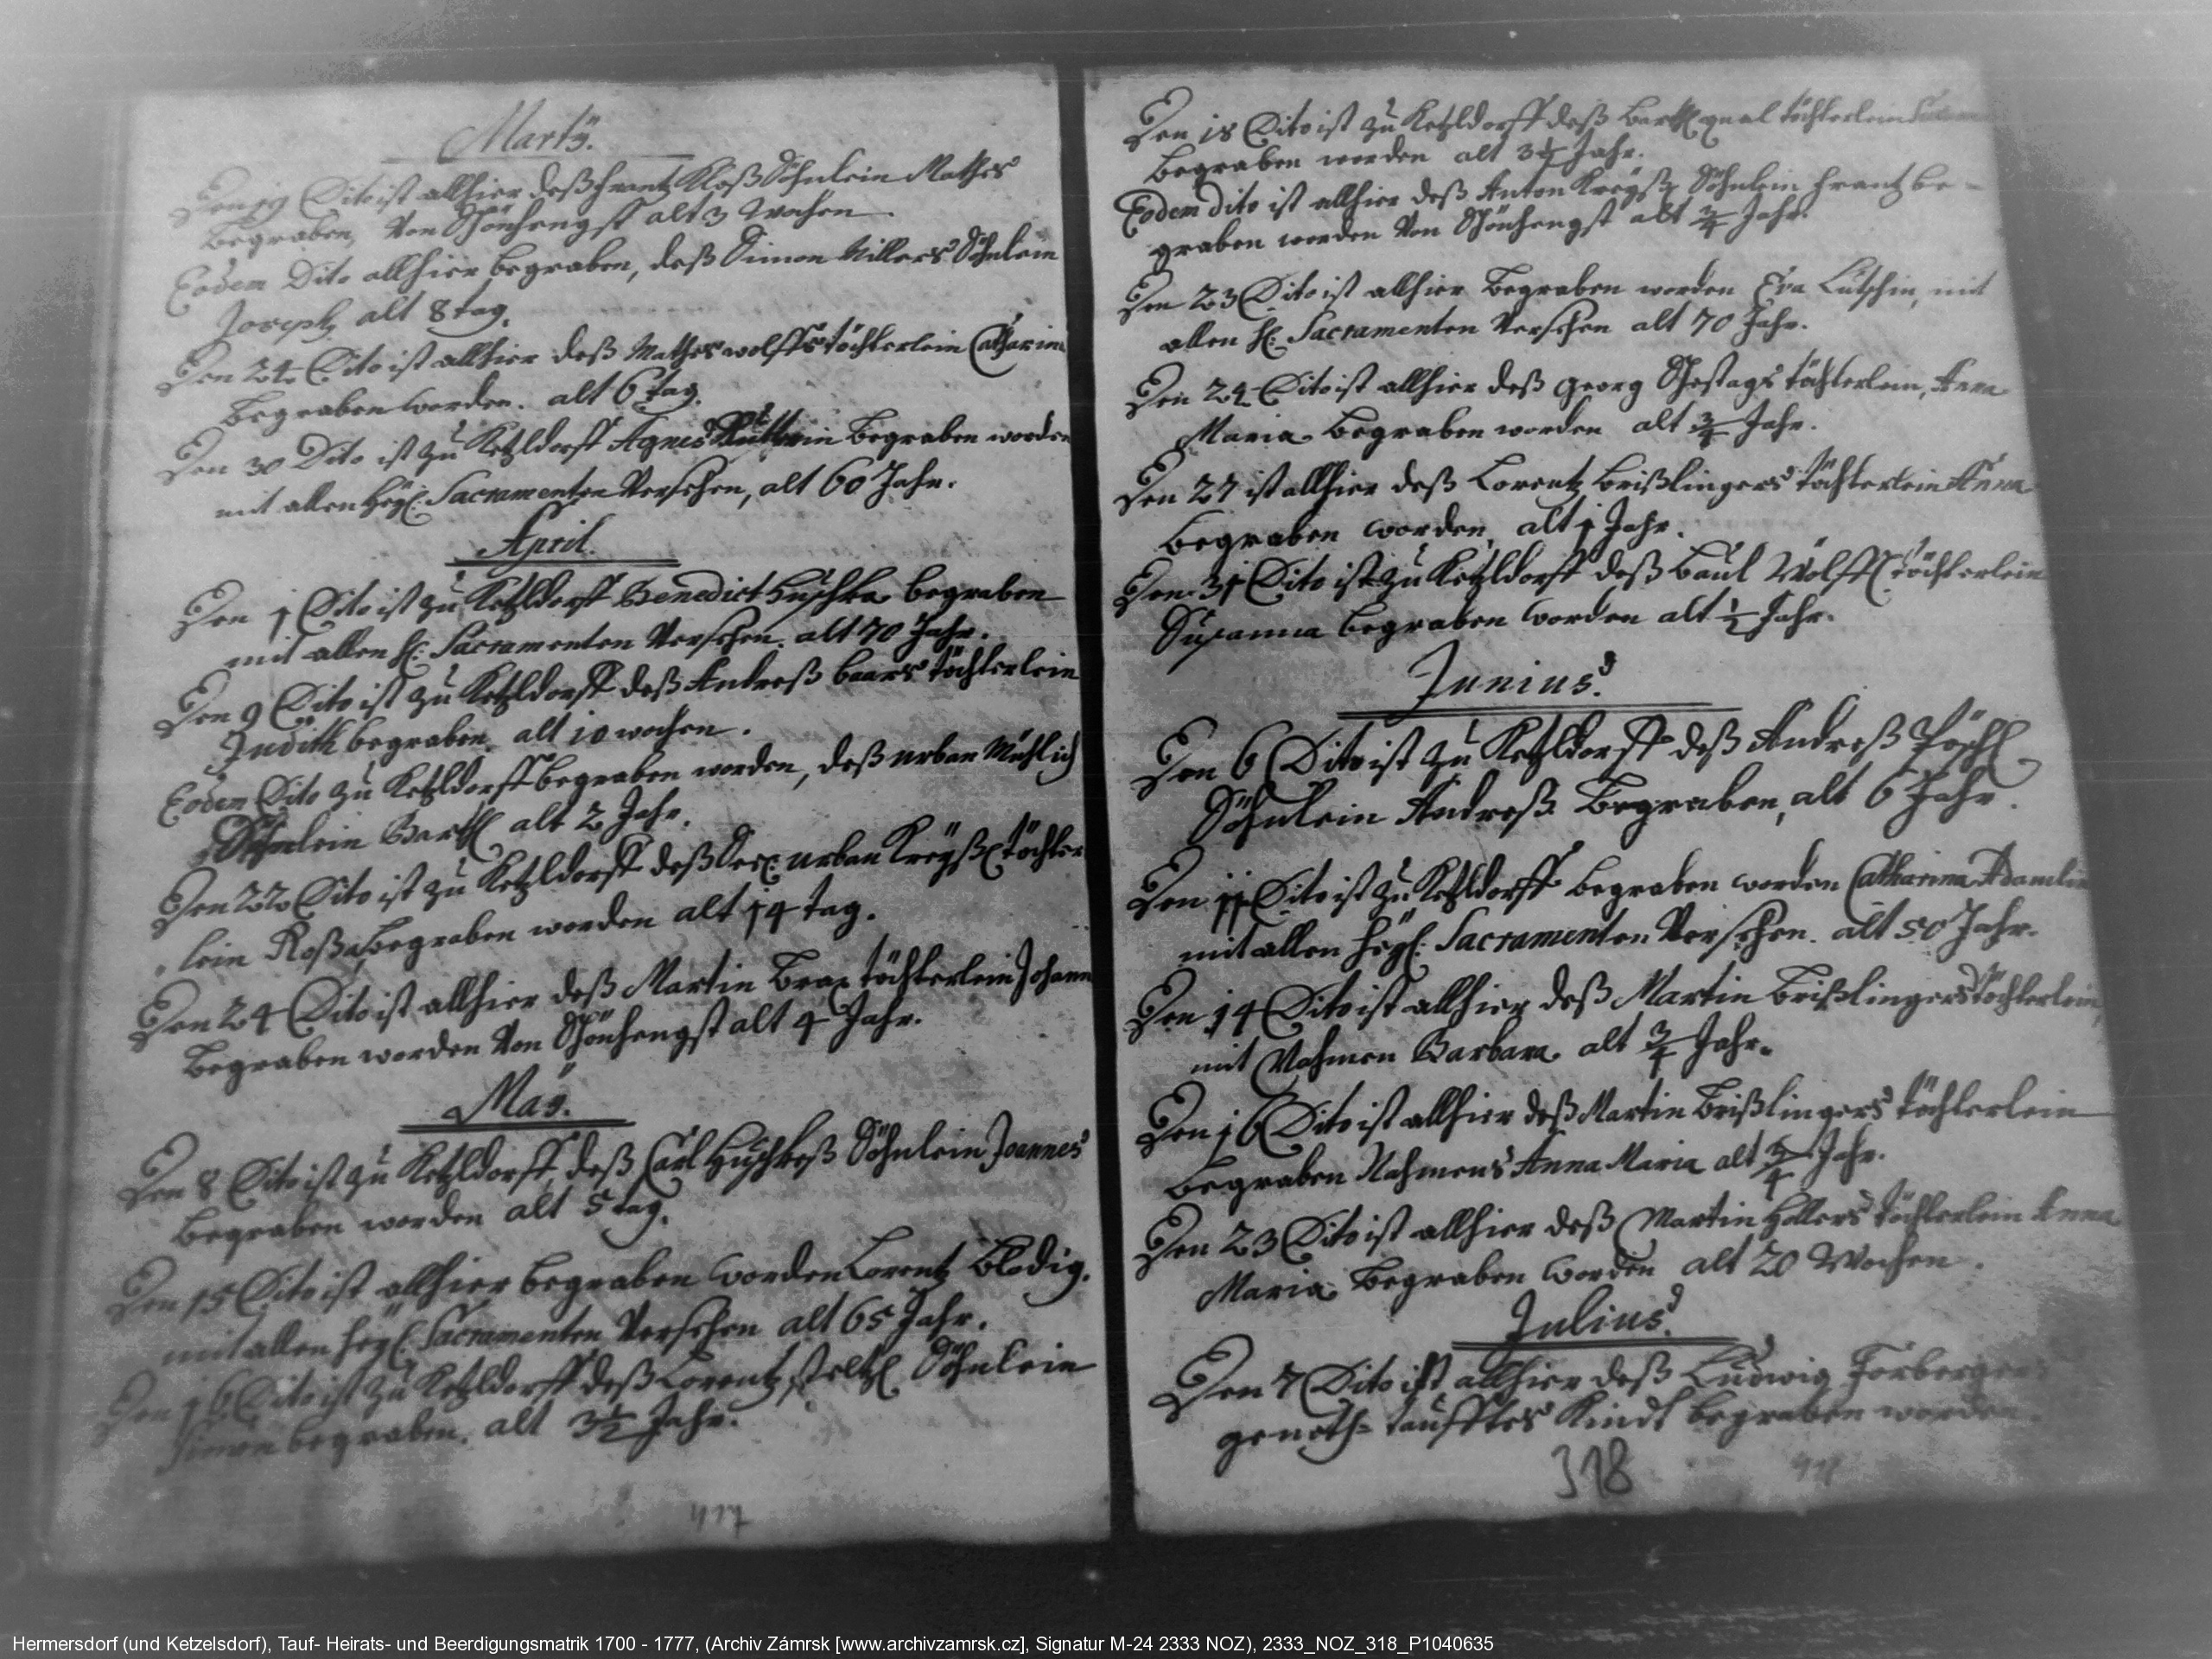 Martÿ.
Den 19 Dito ist allhier deß Frantz Kloß Söhnlein Mathes
Begraben, Von Schönhengst alt 3 Wochen.
Eodem Dito allhier begraben, deß Simon Millers Söhnlein
Joseph alt 8 tag.
Den 24 Dito ist allhier deß Mathes wolffs töchterlein Catharina
Begraben worden. alt 6 tag.
Den 30 Dito ist zu Ketzldorff Agnes begraben worden
mit allen heÿl: Sacramenten Versehen, alt 60 Jahr.
April.
Den 1 Dito ist zu Ketzldorff Benedict Huschka begraben
mit allen h: Sacramenten Versehen. alt 70 Jahr.
Den 9 Dito ist zu Ketzldorff deß Andreß baars töchterlein
Judith begraben. alt 10 wochen.
Eodem Dito zu Ketzldorff begraben worden, deß urban Mühlich
Söhnlein Bartl alt 2 Jahr.
Den 22 Dito ist zu Ketzldorff deß urban Kreÿßl töchter
lein Roßa begraben worden alt 14 tag.
Den 24 Dito ist allhier deß Martin Brax töchterlein Johann
Begraben worden Von Schönhengst alt 4 Jahr.
Maÿ.
Den 8 Dito ist zu Ketzldorff deß Carl Huschkeß Söhnlein Joannes
Begraben worden alt 5 tag.
Den 15 Dito ist allhier begraben worden Lorentz Blodig.
mit allen heÿl: Sacramenten Versehen alt 65 Jahr.
Den 16 Dito ist zu Ketzldorff deß Lorentz steltzl Söhnlein
Simon begraben. alt 3½ Jahr.
417
Den 18 Dito ist zu Ketzldorff deß Bartl töchterlein
Begraben worden alt 3½ Jahr.
Eodem dito ist allhier deß Anton Kreÿßl Söhnlein Frantz be-
graben worden Von Schönhengst alt ¾ Jahr.
Den 23 Dito ist allhier Begraben worden Eva Lutschin, mit
allen h: Sacramenten Versehen alt 70 Jahr.
Den 24 Dito ist allhier deß Georg Schestags töchterlein, Anna
Maria Begraben worden alt ¾ Jahr.
Den 27 ist allhier deß Lorentz Brißlingers töchterlein Anna
begraben worden, alt 1 Jahr.
Den 31 Dito ist zu Ketzldorff deß Paul Wölffl töchterlein
Susanna begraben worden alt ½ Jahr.
Junius.
Den 6 Dito ist zu Ketzldorff deß Andreß Pöschl
Söhnlein Andreß Begraben, alt 6 Jahr.
Den 11 Dito ist zu Ketzldorff begraben worden Catharina Adamlin
mit allen heÿl: Sacramenten Versehen. alt 50 Jahr.
Den 14 Dito ist allhier deß Martin Brißlingers töchterlein,
mit Nahmen Barbara alt ¾ Jahr.
Den 16 Dito ist allhier deß Martin Brißlingers töchterlein
begraben Nahmens Anna Maria alt ¾ Jahr.
Den 23 Dito ist allhier deß Martin Hollers töchterlein Anna
Maria Begraben worden alt 20 Wochen.
Julius.
Den 7 Dito ist allhier deß Ludwig Forberger
genoth-taufftes Kindt begraben worden
318
Hermersdorf (und Ketzelsdorf), Tauf- Heirats- und Beerdigungsmatrik 1700 - 1777, (Archiv Zámrsk [www.archivzamrsk.cz], Signatur M-24 2333 NOZ), 2333_NOZ_318_P1040635